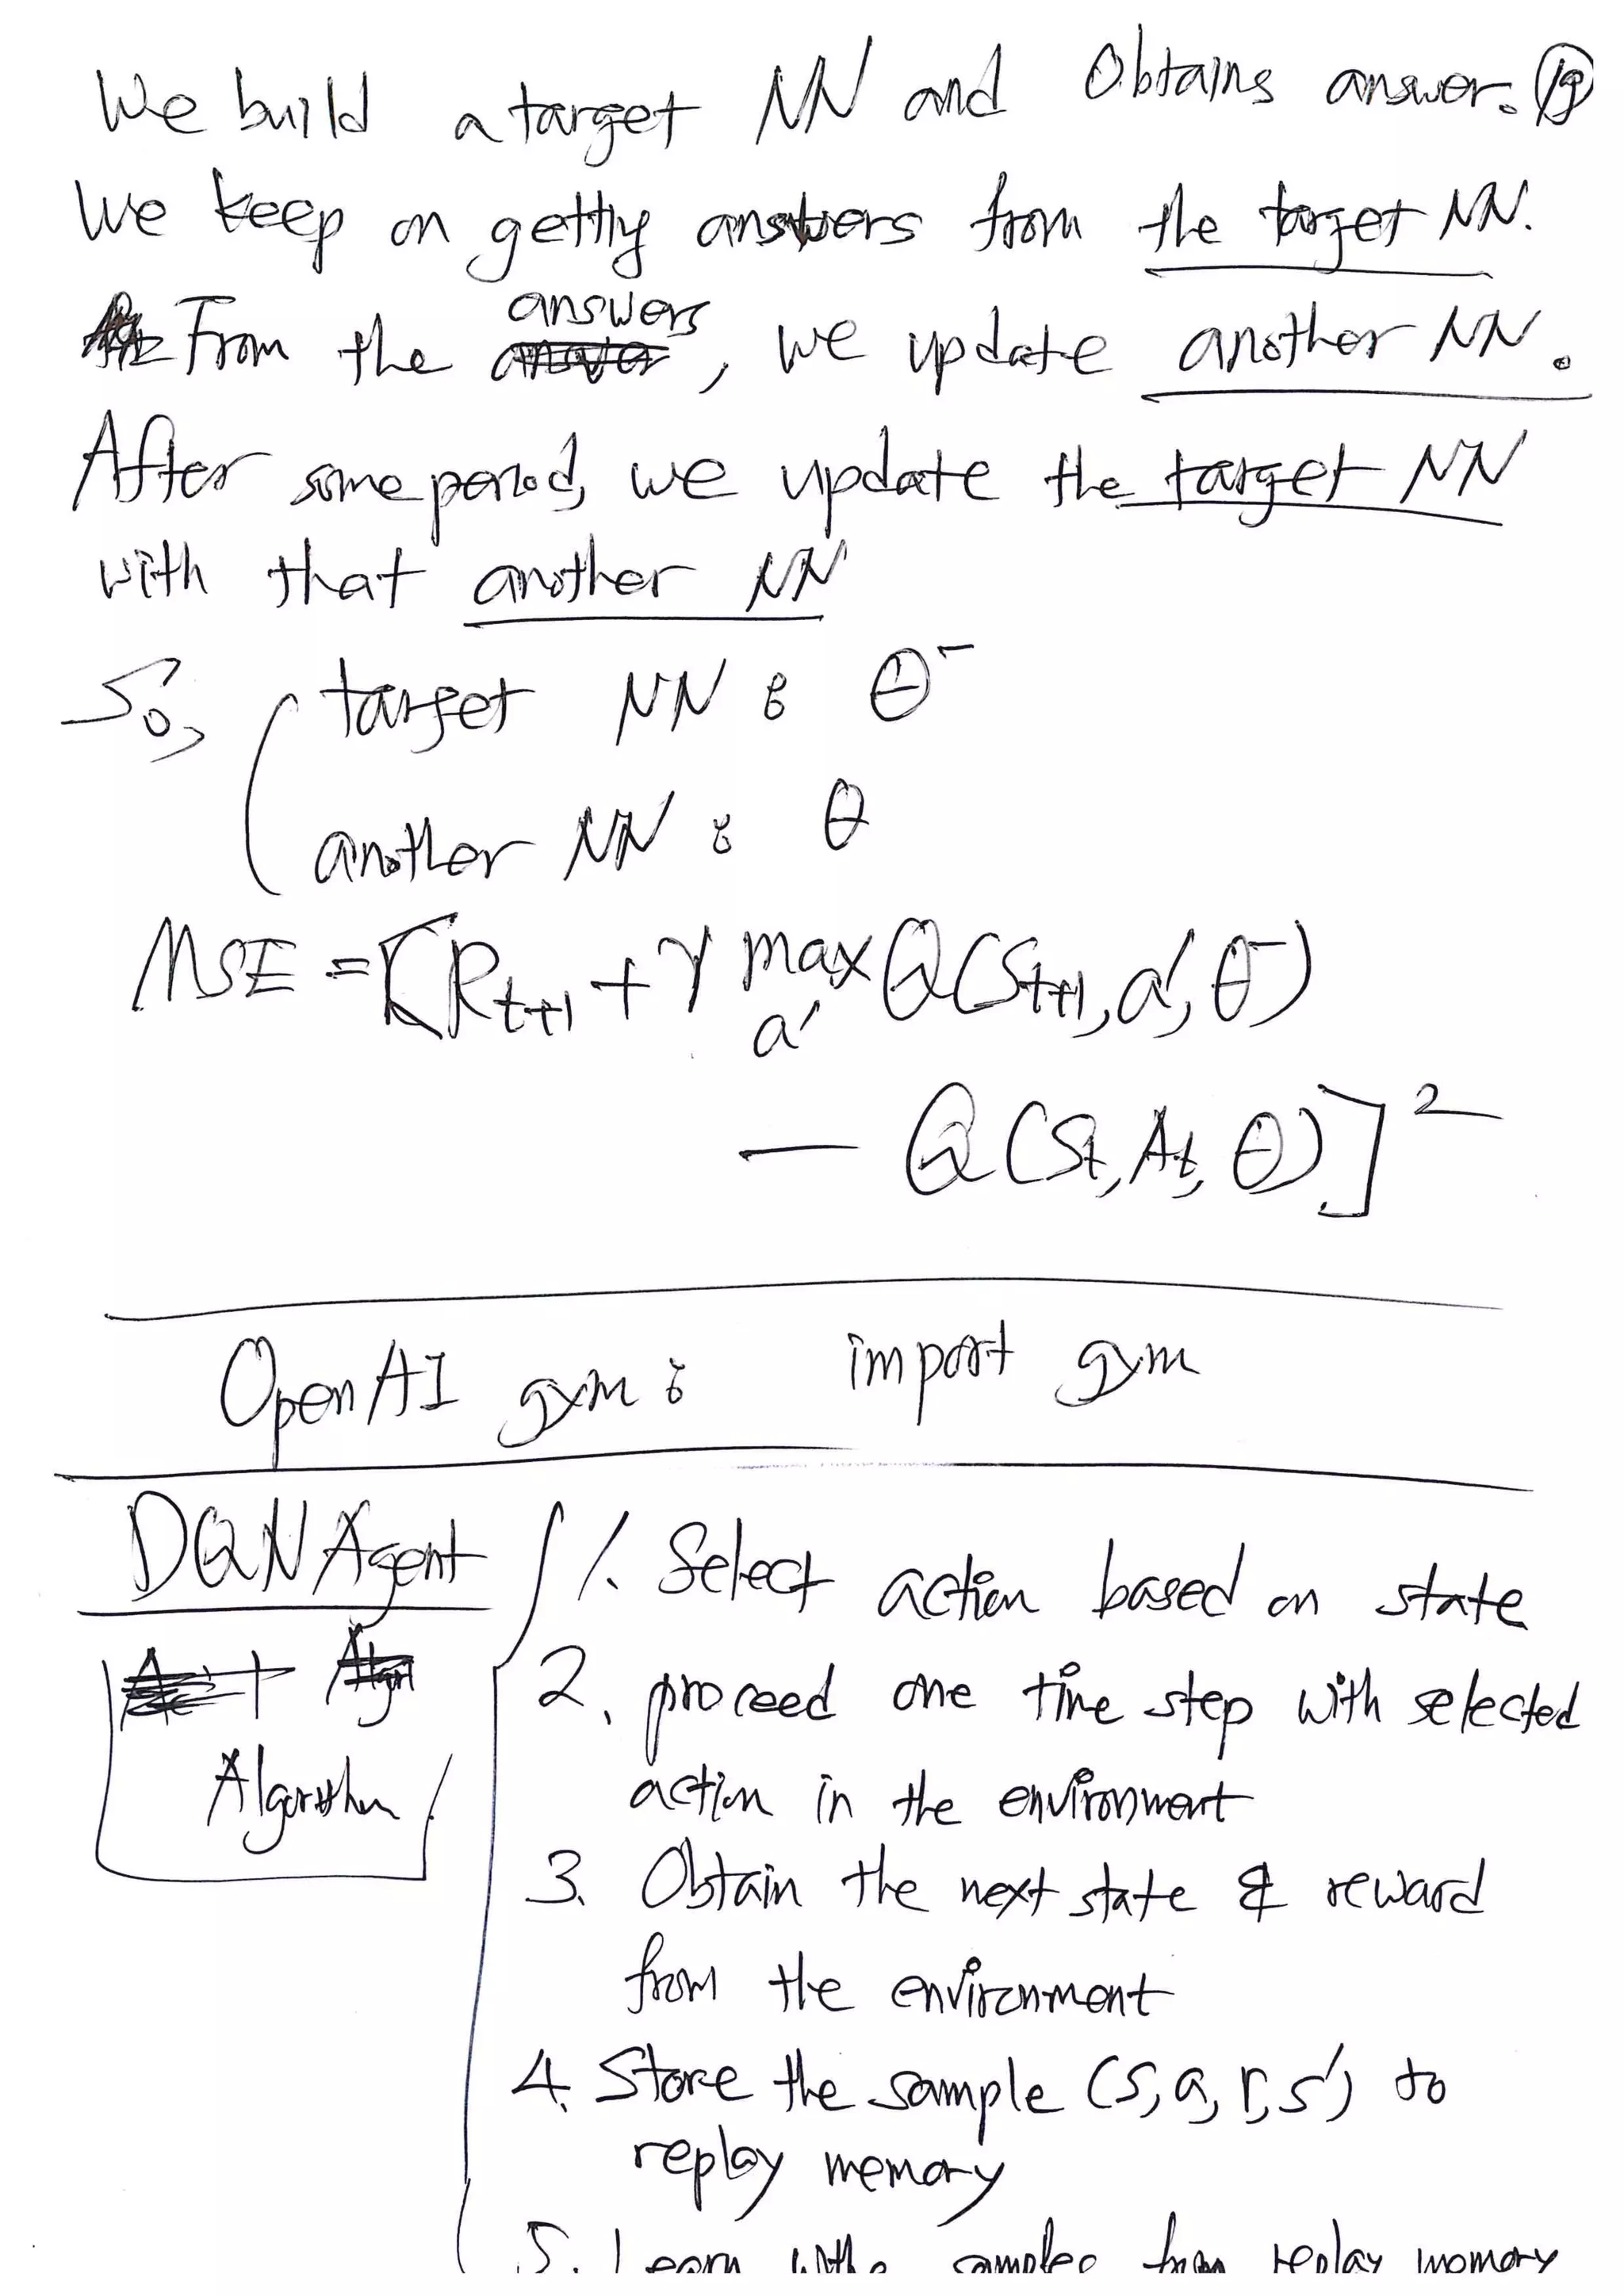 We build a target NN and Obtains answer. 19
We keep on getting answers from the target NN.
From the answers, we update another NN.
After some period, we update the target NN
with that another NN
So, target NN : θ⁻
another NN : θ
MSE = [R_{t+1} + γ max_{a'} Q(S_{t+1}, a', θ⁻)
− Q(S_t, A_t, θ)]²
OpenAI gym : import gym
DQN Agent
Algorithm
1. Select action based on state
2. proceed one time step with selected
action in the environment
3. Obtain the next state & reward
from the environment
4. Store the sample (s, a, r, s') to
replay memory
5. Learn with samples from replay memory